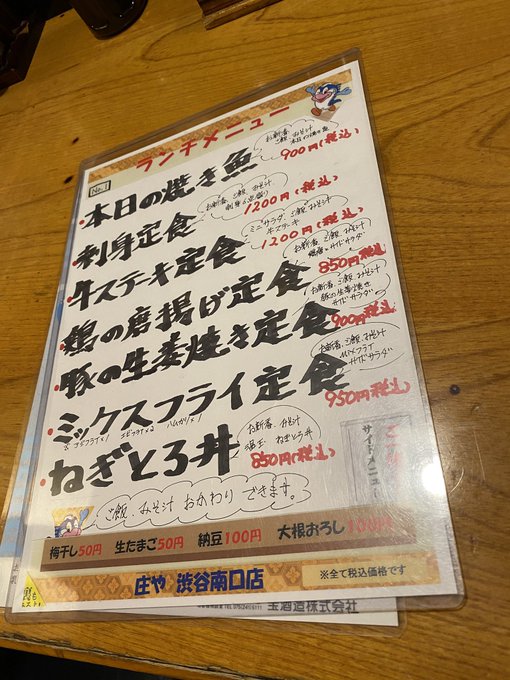 ランチメニュー
No.1
・本日の焼き魚
お新香、ご飯、みそ汁
本日の焼き魚
900円(税込)
・刺身定食
お新香、ご飯、みそ汁
1200円(税込)
・牛ステーキ定食
ミニサラダ、ご飯、みそ汁
牛ステーキ
1200円(税込)
・鶏の唐揚げ定食
お新香、ご飯、みそ汁
850円(税込)
・豚の生姜焼き定食
お新香、ご飯、みそ汁
豚の生姜焼き
サイドサラダ
900円(税込)
・ミックスフライ定食
お新香、ご飯、みそ汁
サイドサラダ
950円(税込)
・ねぎとろ丼
お新香、みそ汁
温玉、ねぎとろ丼
850円(税込)
ご飯、みそ汁 おかわり できます。
サイドメニュー
梅干し50円 生たまご50円 納豆100円 大根おろし100円
庄や 渋谷南口店
※全て税込価格です
玉酒造株式会社